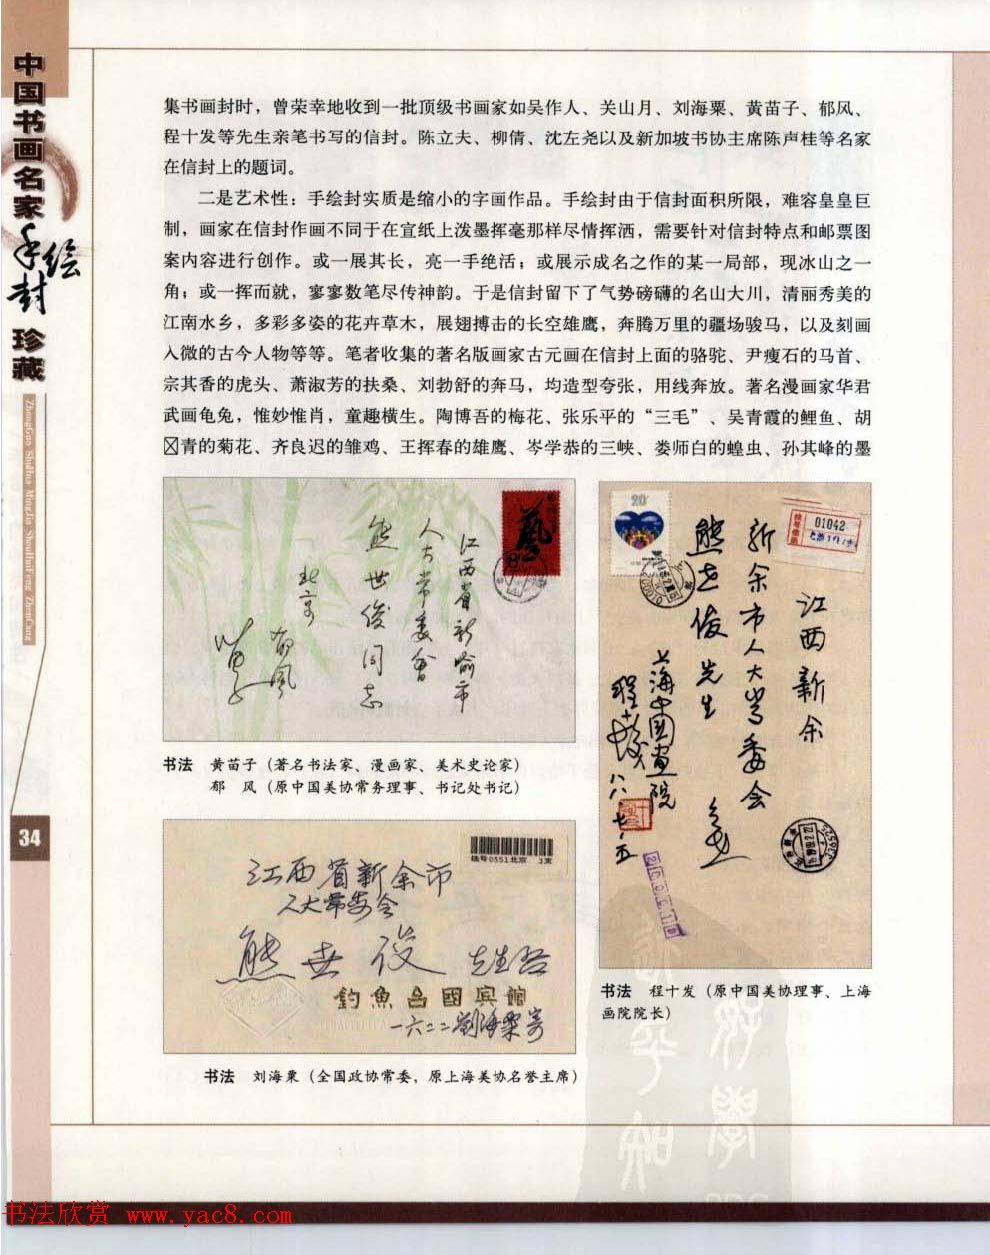 中国书画名家手绘封珍藏
ZhongGuo ShuHua MingJia ShouHuiFeng ZhenCang
34
集书画封时，曾荣幸地收到一批顶级书画家如吴作人、关山月、刘海粟、黄苗子、郁风、
程十发等先生亲笔书写的信封。陈立夫、柳倩、沈左尧以及新加坡书协主席陈声桂等名家
在信封上的题词。
二是艺术性：手绘封实质是缩小的字画作品。手绘封由于信封面积所限，难容皇皇巨
制，画家在信封作画不同于在宣纸上泼墨挥毫那样尽情挥洒，需要针对信封特点和邮票图
案内容进行创作。或一展其长，亮一手绝活；或展示成名之作的某一局部，现冰山之一
角；或一挥而就，寥寥数笔尽传神韵。于是信封留下了气势磅礴的名山大川，清丽秀美的
江南水乡，多彩多姿的花卉草木，展翅搏击的长空雄鹰，奔腾万里的疆场骏马，以及刻画
入微的古今人物等等。笔者收集的著名版画家古元画在信封上面的骆驼、尹瘦石的马首、
宗其香的虎头、萧淑芳的扶桑、刘勃舒的奔马，均造型夸张，用线奔放。著名漫画家华君
武画龟兔，惟妙惟肖，童趣横生。陶博吾的梅花、张乐平的“三毛”、吴青霞的鲤鱼、胡
青的菊花、齐良迟的雏鸡、王挥春的雄鹰、岑学恭的三峡、娄师白的蝗虫、孙其峰的墨
江西省新喻市
人大常委会
熊世俊同志
北京
郁风
苗子
藝
书法 黄苗子（著名书法家、漫画家、美术史论家）
郁 风（原中国美协常务理事、书记处书记）
挂号0551北京 3支
江西省新余市
人大常委会
熊世俊 先生启
釣魚台國宾館
一六二二劉海粟寄
书法 刘海粟（全国政协常委，原上海美协名誉主席）
20
01042
江西新余
新余市人大常委会
熊世俊先生
上海中国画院
程十发
八八、七、五
书法 程十发（原中国美协理事、上海
画院院长）
好學
书法欣赏 www.yac8.com